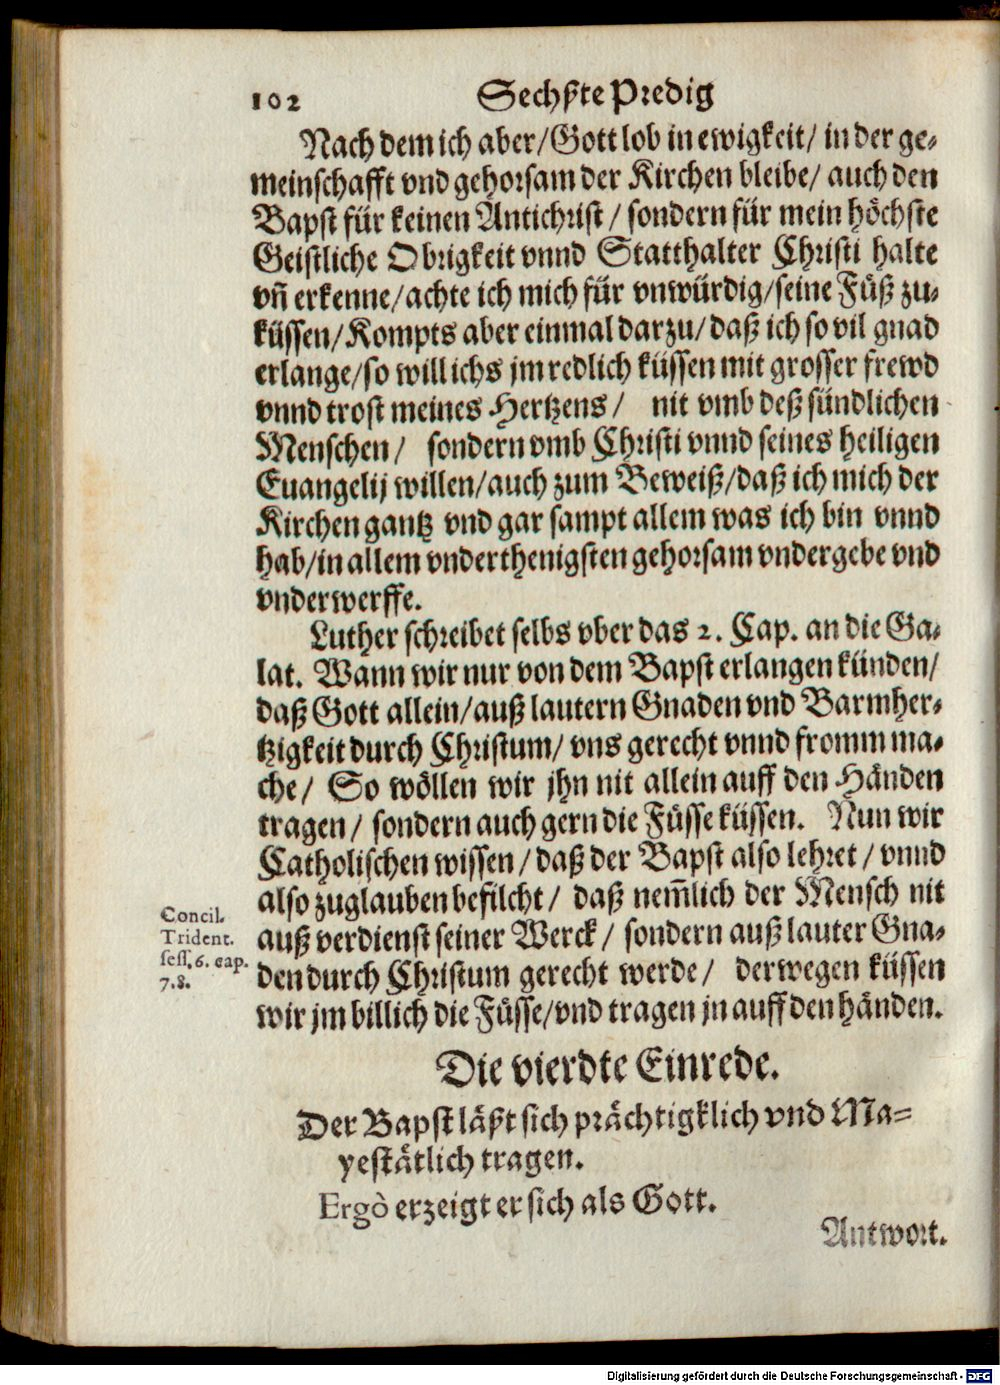 102 Sechßte Predig
Nach dem ich aber/Gott lob in ewigkeit/ in der ge-
meinschafft vnd gehorsam der Kirchen bleibe/ auch den
Bapst für keinen Antichrist/ sondern für mein höchste
Geistliche Obrigkeit vnnd Statthalter Christi halte
vn̄ erkenne/achte ich mich für vnwürdig/seine Füß zu-
küssen/Kompts aber einmal darzu/daß ich so vil gnad
erlange/so will ichs jm redlich küssen mit grosser frewd
vnnd trost meines Hertzens/ nit vmb deß sündlichen
Menschen/ sondern vmb Christi vnnd seines heiligen
Euangelij willen/auch zum Beweiß/daß ich mich der
Kirchen gantz vnd gar sampt allem was ich bin vnnd
hab/in allem vnderthenigsten gehorsam vndergebe vnd
vnderwerffe.
Luther schreibet selbs vber das 2. Cap. an die Ga-
lat. Wann wir nur von dem Bapst erlangen künden/
daß Gott allein/auß lautern Gnaden vnd Barmher-
tzigkeit durch Christum/ vns gerecht vnnd fromm ma-
che/ So wöllen wir jhn nit allein auff den Händen
tragen/ sondern auch gern die Füsse küssen. Nun wir
Catholischen wissen/daß der Bapst also lehret/ vnnd
also zuglauben befilcht/ daß nem̄lich der Mensch nit
auß verdienst seiner Werck/ sondern auß lauter Gna-
den durch Christum gerecht werde/ derwegen küssen
wir jm billich die Füsse/vnd tragen jn auff den händen.
Concil.
Trident.
sess. 6. cap.
7.8.
Die vierdte Einrede.
Der Bapst läßt sich prächtigklich vnd Ma-
yestätlich tragen.
Ergò erzeigt er sich als Gott.
Antwort.
Digitalisierung gefördert durch die Deutsche Forschungsgemeinschaft - DFG